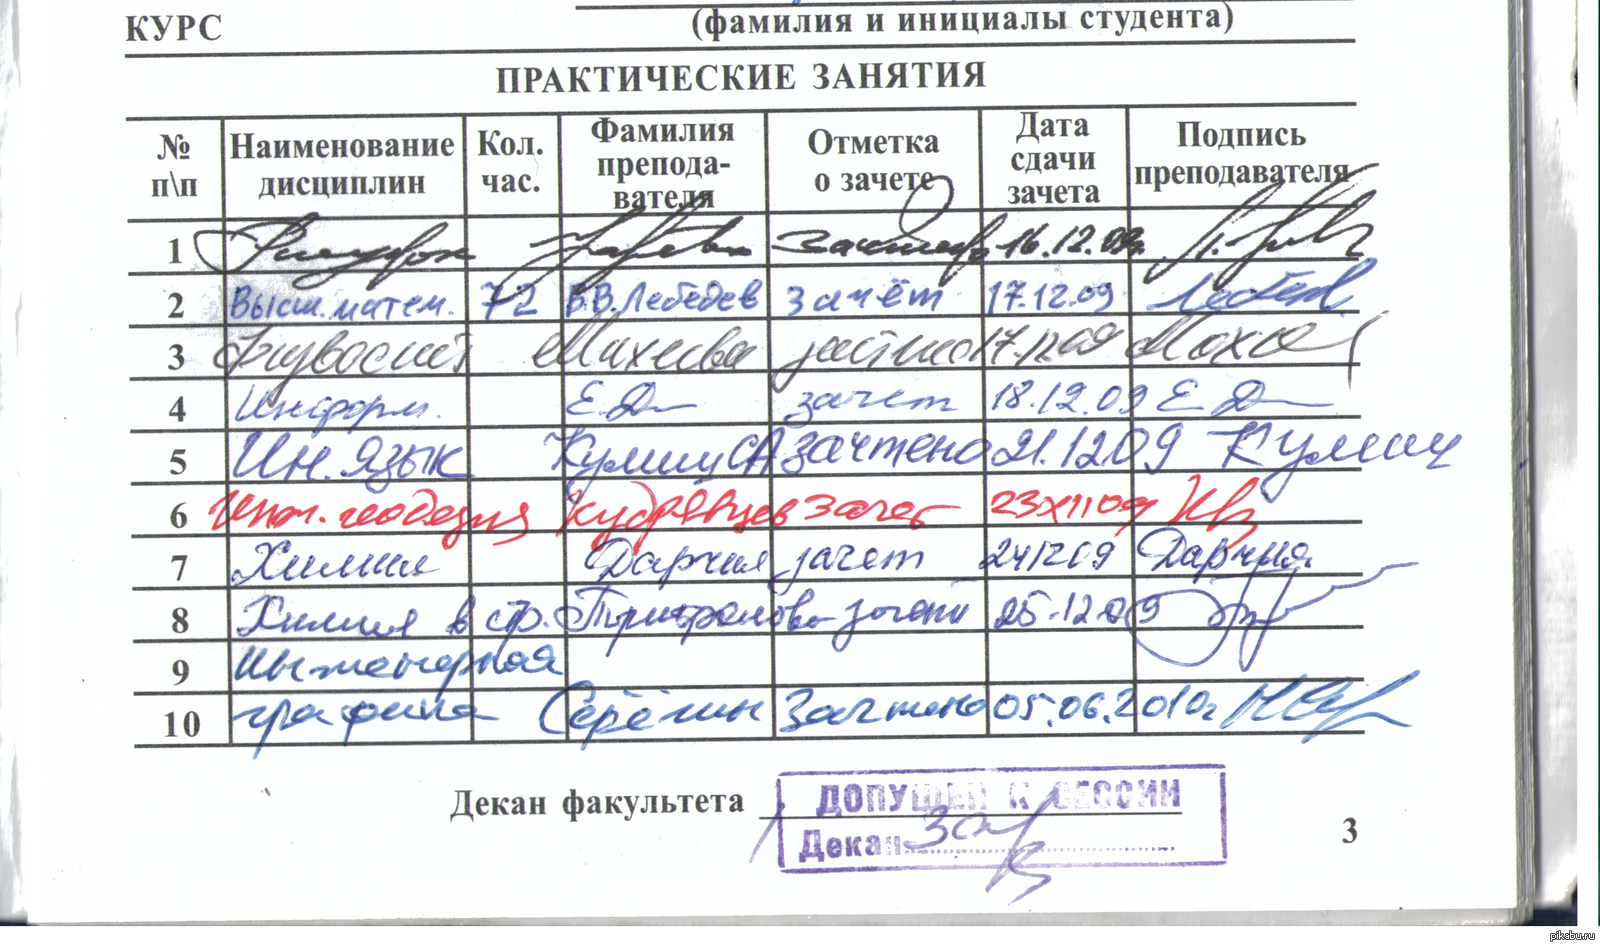 КУРС
(фамилия и инициалы студента)
ПРАКТИЧЕСКИЕ ЗАНЯТИЯ
№ п\п Наименование дисциплин Кол. час. Фамилия препода-вателя Отметка о зачете Дата сдачи зачета Подпись преподавателя
1 16.12.09г.
2 Высш. матем. 72 В.В. Лебедев зачёт 17.12.09
3 Физвоспит Михеева 17.12.09
4 Информ. Е.Д зачет 18.12.09 Е.Д
5 Ин. язык Кулиш СА зачтено 21.12.09 Кулиш
6 Инж. геодезия Кудрявцев зачет 23XII09
7 Химия Дарчия зачет 241209 Дарчия
8 Химия в стр. 25.12.09
9 Инженерная
10 графика Серёгин Зачтено 05.06.2010г
Декан факультета
ДОПУЩЕН К СЕССИИ
Декан
3
pikabu.ru